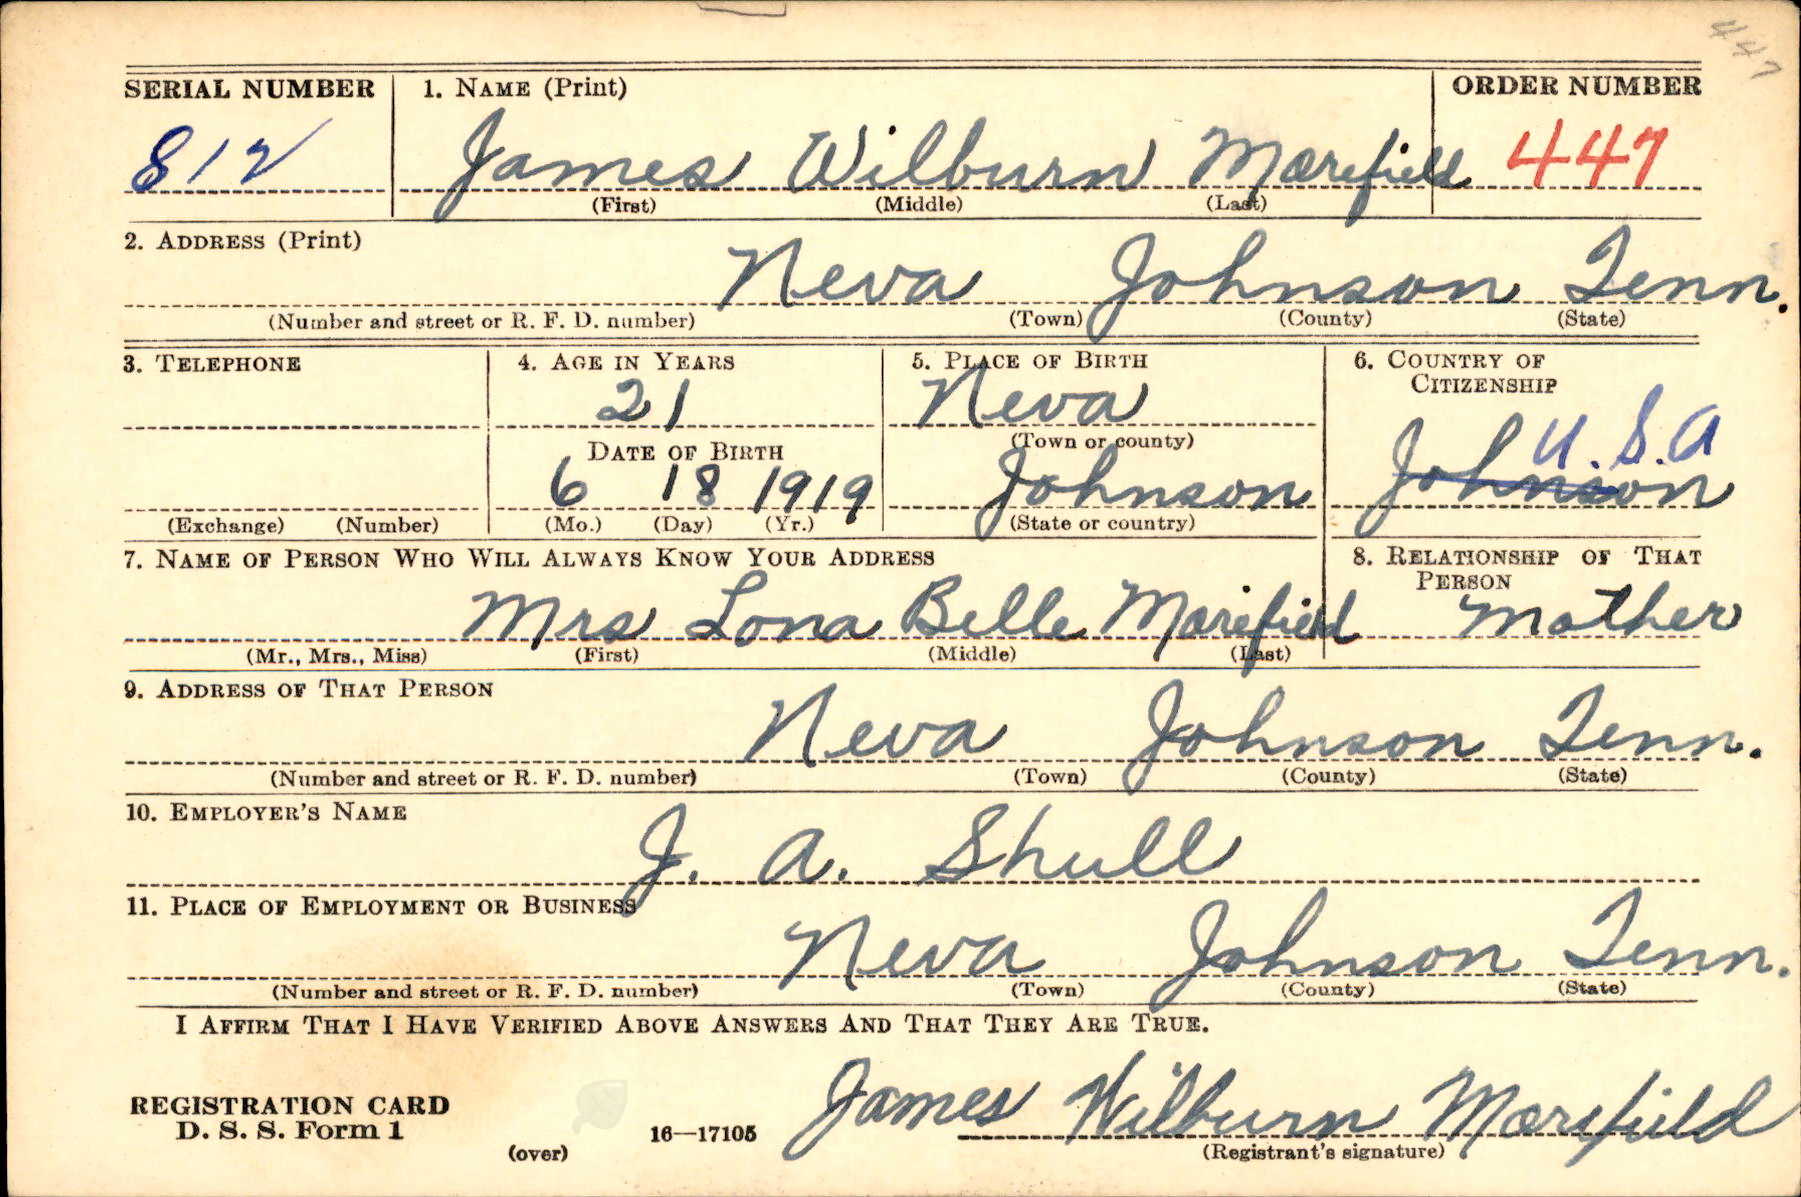 447
SERIAL NUMBER 1. NAME (Print) ORDER NUMBER
812 James Wilburn Morefield 447
(First) (Middle) (Last)
2. ADDRESS (Print)
Neva Johnson Tenn.
(Number and street or R. F. D. number) (Town) (County) (State)
3. TELEPHONE 4. AGE IN YEARS 5. PLACE OF BIRTH 6. COUNTRY OF
CITIZENSHIP
21 Neva U.S.A
DATE OF BIRTH (Town or county)
6 18 1919 Johnson Johnson
(Exchange) (Number) (Mo.) (Day) (Yr.) (State or country)
7. NAME OF PERSON WHO WILL ALWAYS KNOW YOUR ADDRESS 8. RELATIONSHIP OF THAT
PERSON
Mrs Lona Belle Morefield Mother
(Mr., Mrs., Miss) (First) (Middle) (Last)
9. ADDRESS OF THAT PERSON
Neva Johnson Tenn.
(Number and street or R. F. D. number) (Town) (County) (State)
10. EMPLOYER'S NAME
J. A. Shull
11. PLACE OF EMPLOYMENT OR BUSINESS
Neva Johnson Tenn.
(Number and street or R. F. D. number) (Town) (County) (State)
I AFFIRM THAT I HAVE VERIFIED ABOVE ANSWERS AND THAT THEY ARE TRUE.
REGISTRATION CARD James Wilburn Morefield
D. S. S. Form 1 16—17105
(over) (Registrant's signature)